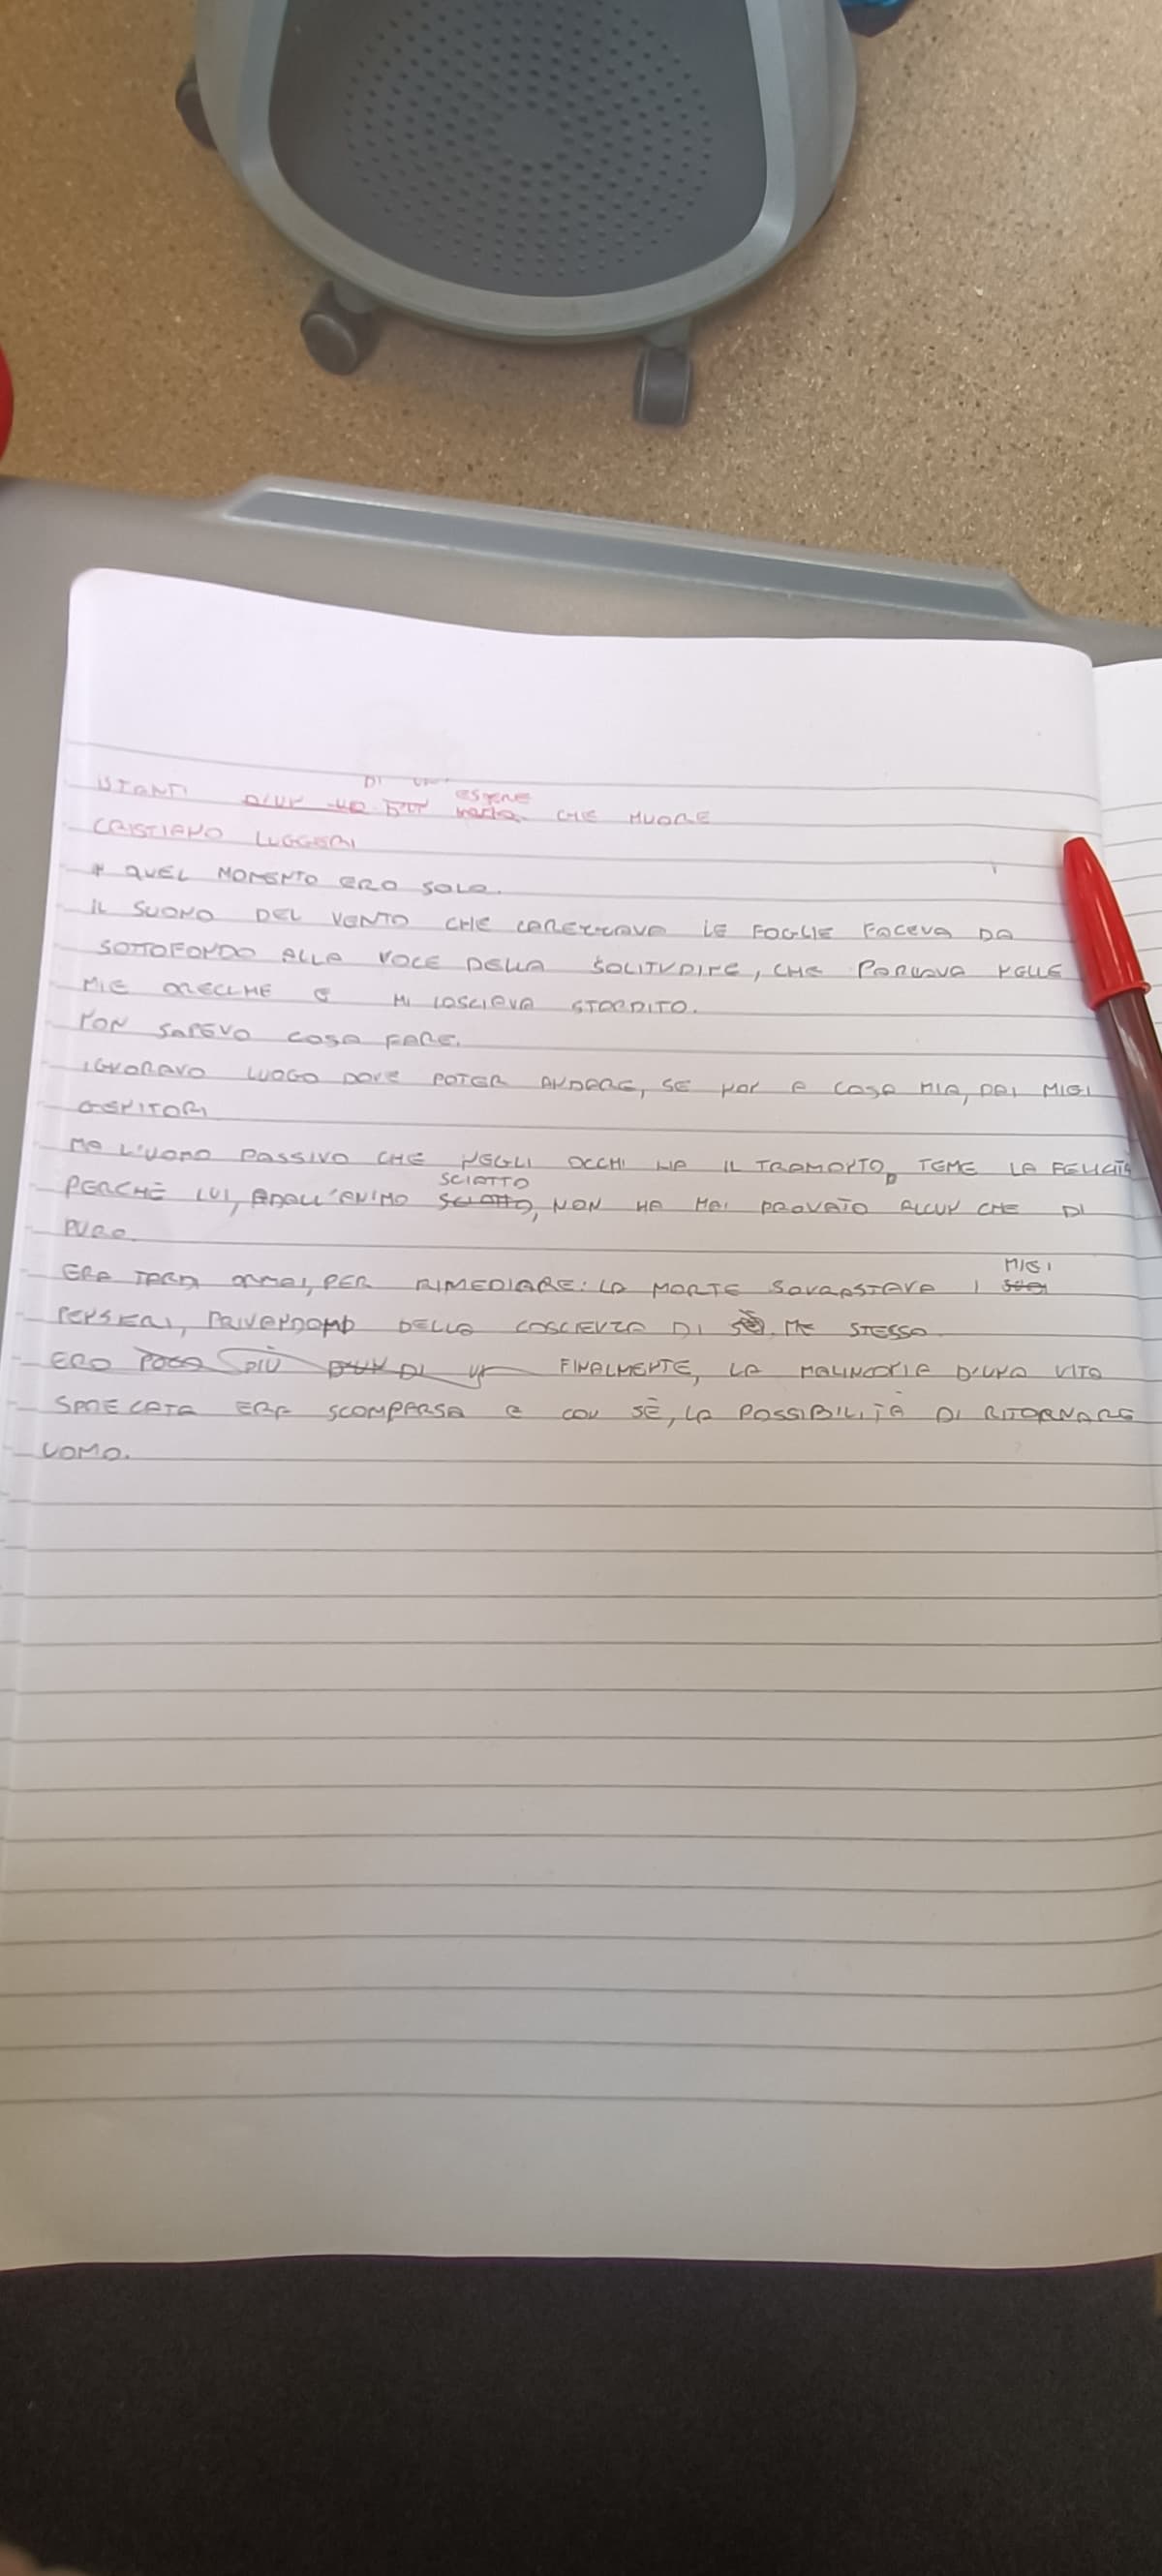 ISTANTI DI UN ESTATE CHE MUORE
CRISTIANO LUGGERI
QUEL MOMENTO ERO SOLO.
IL SUONO DEL VENTO CHE CAREZZAVA LE FOGLIE FACEVA DA
SOTTOFONDO ALLA VOCE DELLA SOLITUDINE, CHE PARLAVA NELLE
MIE ORECCHIE E MI LASCIAVA STORDITO.
NON SAPEVO COSA FARE.
IGNORAVO LUOGO DOVE POTER ANDARE, SE NON A CASA MIA, DAI MIEI
GENITORI
MA L'UOMO PASSIVO CHE NEGLI OCCHI HA IL TRAMONTO, TEME LA FELICITÀ
PERCHÈ LUI, DALL'ANIMO SCIATTO, NON HA MAI PROVATO ALCUN CHE DI
PURO.
ERA TARDI ORMAI, PER RIMEDIARE: LA MORTE SOVRASTAVA I MIEI
PENSIERI, PRIVANDOMI DELLA COSCIENZA DI ME STESSO.
ERO FINALMENTE, LA MALINCONIA D'UNA VITA
SPRECATA ERA SCOMPARSA E CON SÈ, LA POSSIBILITÀ DI RITORNARE
UOMO.